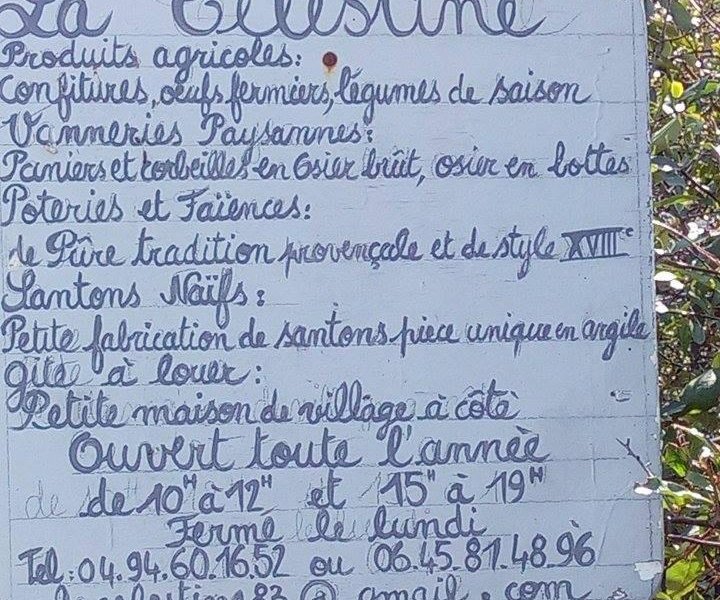 La Celestine
Produits agricoles:
Confitures, oeufs fermiers, légumes de saison
Vanneries Paysannes:
Paniers et corbeilles en Osier brût, osier en bottes
Poteries et Faïences:
de Pûre tradition provençale et de style XVIIIe
Santons Naïfs:
Petite fabrication de santons pièce unique en argile
gîte à louer:
Petite maison de village à côté
Ouvert toute l'année
de 10H à 12H et 15H à 19H
Fermé le lundi
Tel: 04.94.60.16.52 ou 06.45.81.48.96
lacelestine83@gmail.com